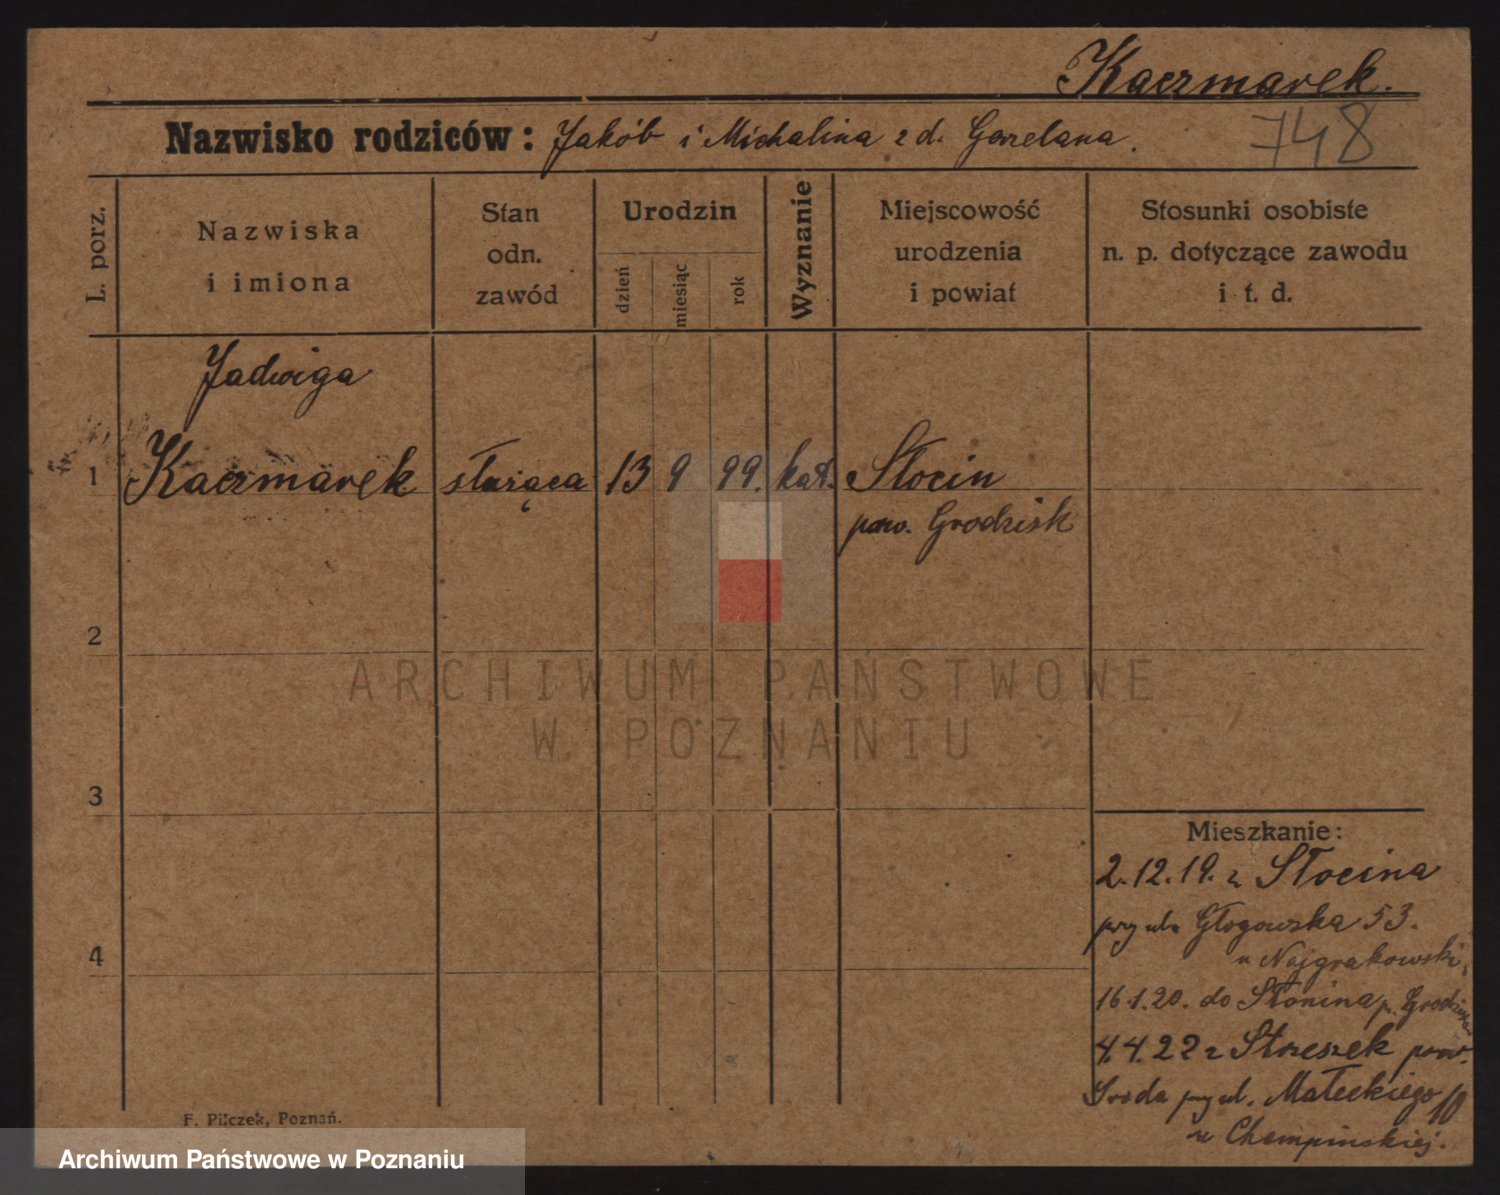 Kaczmarek.
Nazwisko rodziców: Jakób i Michalina z d. Gorzelana.
748
L. porz.
Nazwiska
i imiona
Stan
odn.
zawód
Urodzin
dzień
miesiąc
rok
Wyznanie
Miejscowość
urodzenia
i powiat
Stosunki osobiste
n. p. dotyczące zawodu
i t. d.
Jadwiga
1 Kaczmarek służąca 13 9 99. kat. Słocin
pow. Grodzisk
2
3
4
Mieszkanie:
2.12.19. z Słocina
przy ul. Głogowska 53.
u Najgrakowski,
16.1.20. do Słonina p. Grodzisk
4.4.22 z Strzeszek pow.
Środa przy ul. Małeckiego 10
u Chempińskiej.
F. Pilczek, Poznań.
ARCHIWUM PAŃSTWOWE
W POZNANIU
Archiwum Państwowe w Poznaniu